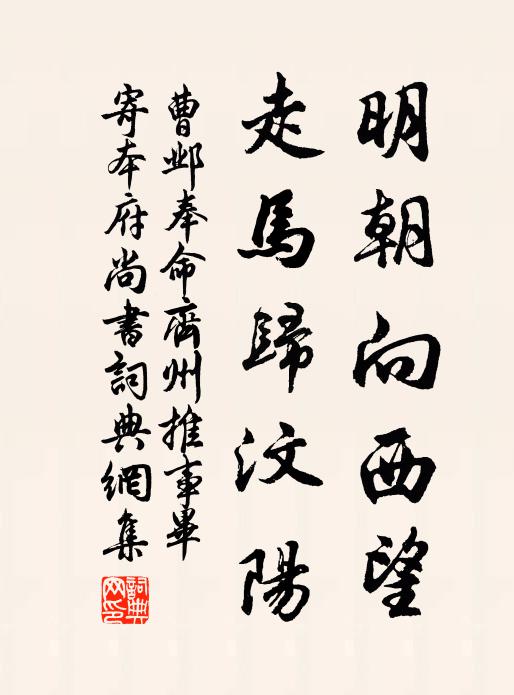 明朝向西望
走馬歸汶陽
曹邺奉命齊州推事畢
寄本府尚書詞典網集
詞典網印